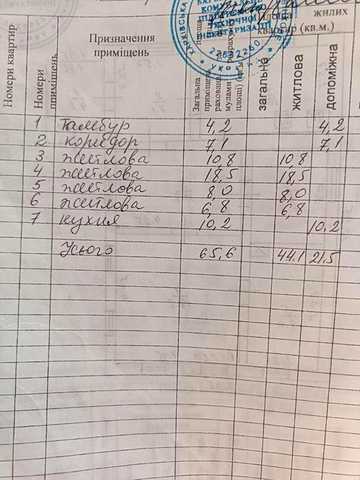 Номери квартир
Номери приміщень
Призначення приміщень
Загальна
площі)
загальне
житлова
допоміжна
жилих
квартир (кв.м.)
ТЕХНІЧНОЇ
ІНВЕНТАРИЗАЦІЇ
1 Тамбур 4,2 4,2
2 коридор 7,1 7,1
3 житлова 10,8 10,8
4 житлова 18,5 18,5
5 житлова 8,0 8,0
6 житлова 6,8 6,8
7 кухня 10,2 10,2
Усього 65,6 44,1 21,5